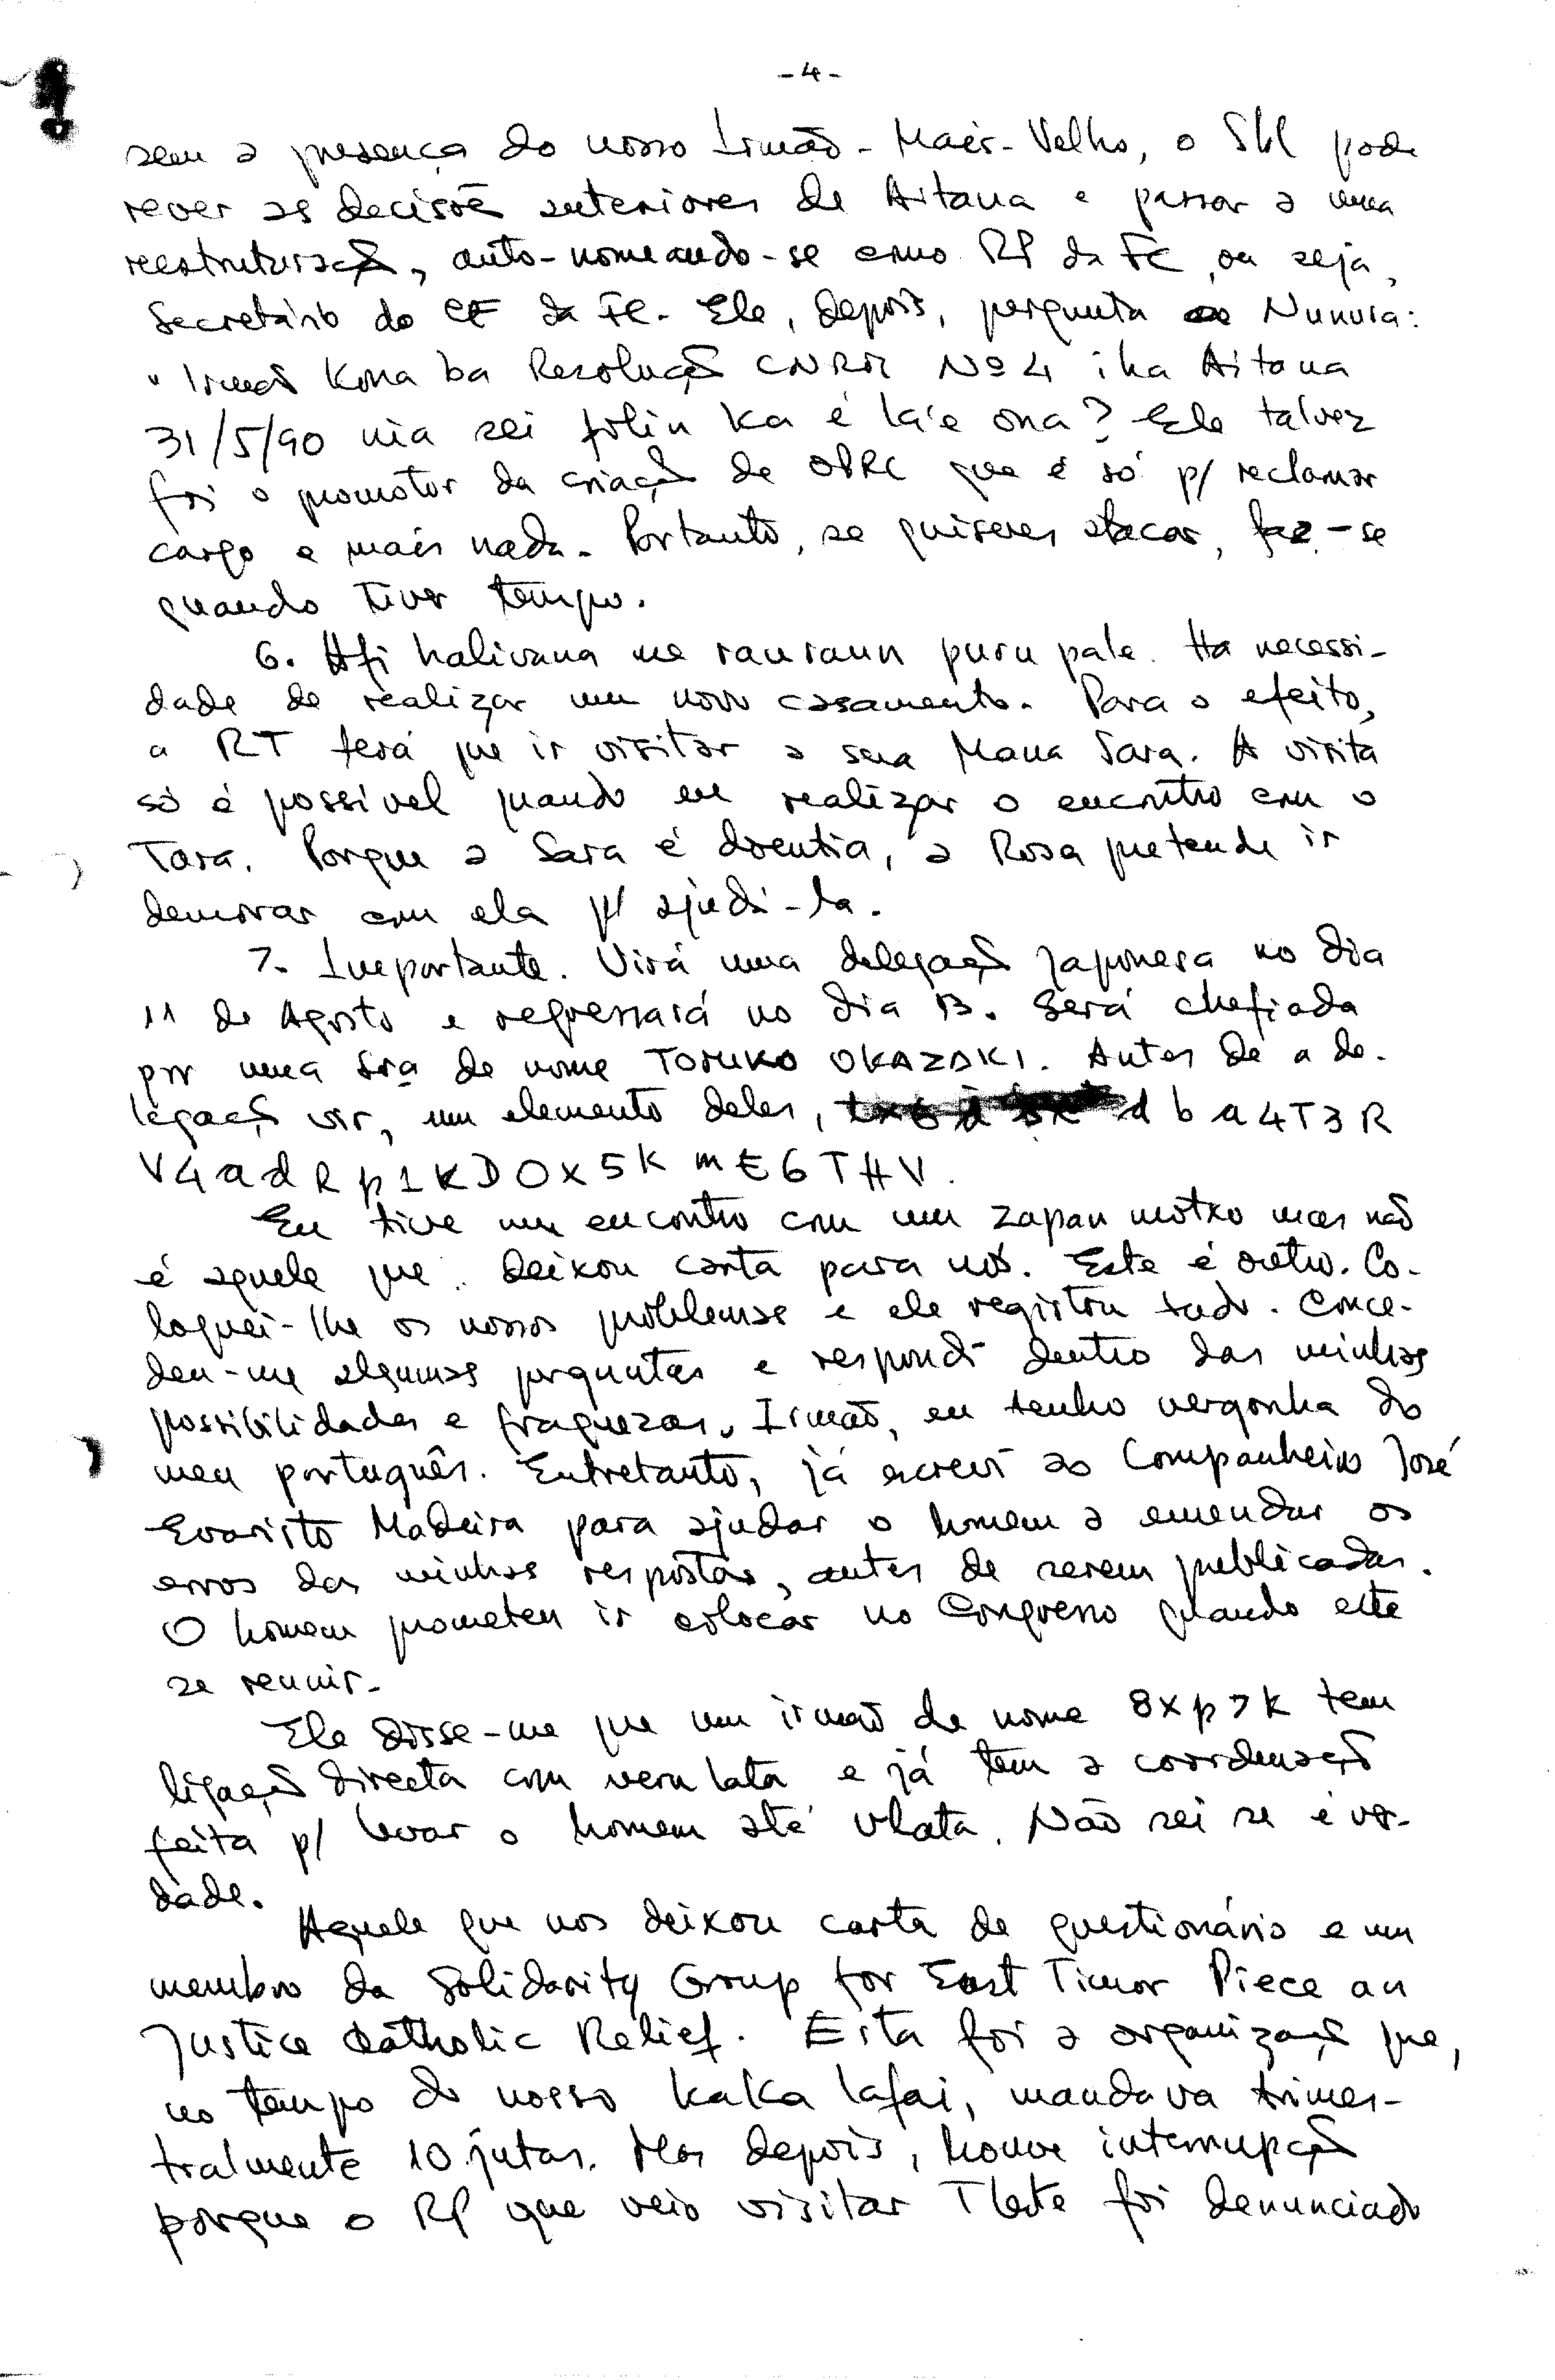 -4-
sem a presença do nosso Irmão-Mais-Velho, o SKL pode
rever as decisões anteriores de Aitana e passar a uma
reestruturação, auto-nomeando-se como RP da FC, ou seja,
Secretário do CE da FC. Ele, depois, pergunta ao Nunura:
"Irmão Kona ba Resolução CNRM Nº 4 iha Aitana
31/5/90 nia sei folin ka é la'e ona? Ele talvez
foi o promotor da criação de OPRC que é só p/ reclamar
cargo e mais nada. Portanto, se quiseres atacar, faz-se
quando tiver tempo.
6. Afi halivana ne rauraun puru pale. Há necessi-
dade de realizar um novo casamento. Para o efeito,
a RT terá que ir visitar a sua Mana Sara. A visita
só é possível quando eu realizar o encontro com o
Tara. Porque a Sara é doentia, a Rosa pretende ir
demorar com ela p/ ajudá-la.
7. Importante. Virá uma delegação japonesa no dia
11 de Agosto e regressará no dia 13. Será chefiada
por uma Sra de nome TORUKO OKAZAKI. Antes de a de-
legação vir, um elemento deles, d b a 4 T 3 R
V 4 a d R p 1 K D O X 5 K m E 6 T H V.
Eu tive um encontro com um zapan motxo mas não
é aquele que deixou carta para nós. Este é outro. Co-
loquei-lhe os nossos problemas e ele registou tudo. Conce-
deu-me algumas perguntas e respondi dentro das minhas
possibilidades e fraquezas. Irmão, eu tenho vergonha do
meu português. Entretanto, já escrevi ao Companheiro José
Evaristo Madeira para ajudar o homem a emendar os
erros das minhas respostas, antes de serem publicadas.
O homem prometeu ir colocar no Congresso quando este
se reunir.
Ele disse-me que um irmão de nome 8 X p 7 K tem
ligação directa com veru lata e já tem a coordenação
feita p/ levar o homem até Vlata. Não sei se é ver-
dade.
Aquele que nos deixou carta de questionário e um
membro da Solidarity Group for East Timor Piece an
Justice Catholic Relief. Esta foi a organização que,
no tempo do nosso Kaka Lafai, mandava trimes-
tralmente 10 jutas. Mas depois, houve interrupção
porque o RP que veio visitar TLeste foi denunciado